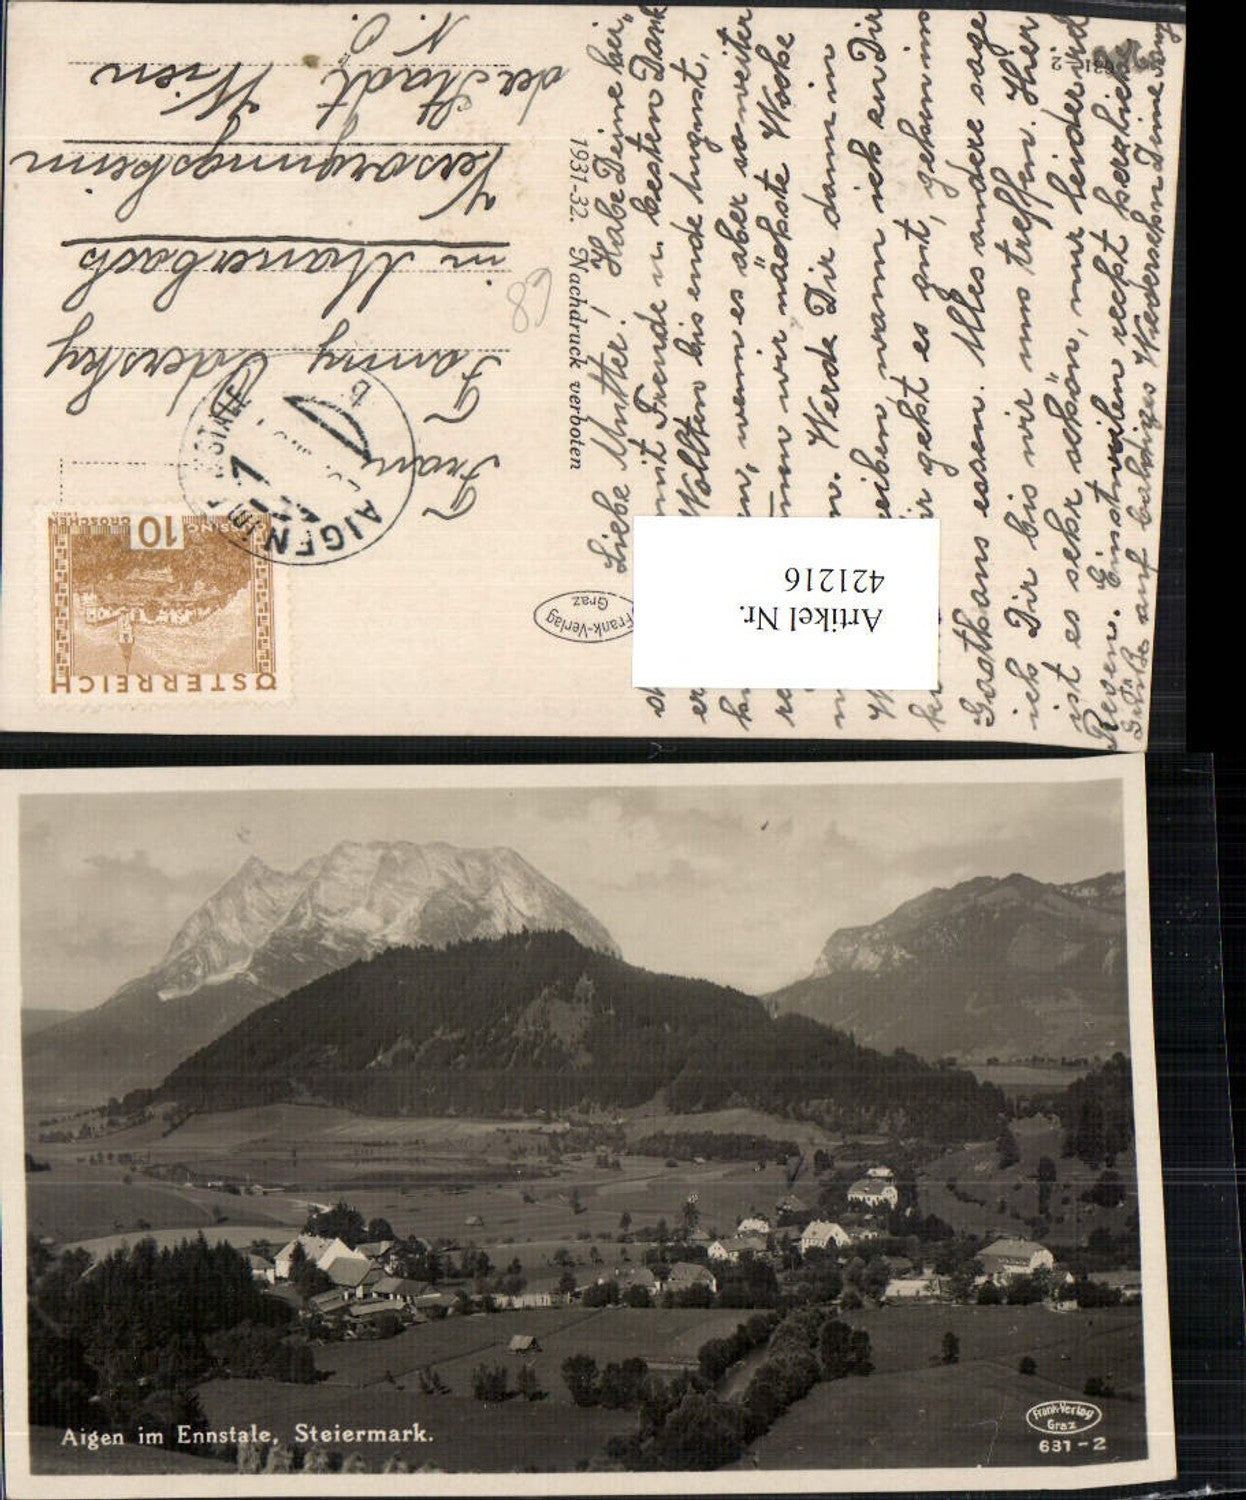 Liebe Mutter! Habe Deine bei„
mit Freude u besten Dank
Wollten bis ende August,
wenn es aber so weiter
wir nächste Woche
Werde Dir dann in
wann ich zu Dir
geht es gut, gehen ins
Gasthaus essen. Alles andere sage
ich Dir bis wir uns treffen. Hier
ist es sehr schön, nur leider viel
Regen. Einstweilen recht herzliche
Grüße auf baldiges Wiedersehn Deine
Frank-Verlag
Graz
1931-32. Nachdruck verboten
631-2
Artikel Nr.
421216
68
ÖSTERREICH
10
GROSCHEN
AIGEN IM ENNSTALE
b
Frau
Fanny Odersky
in Mauerbach
Versorgungsheim
der Stadt Wien
N.Ö.
Aigen im Ennstale, Steiermark.
Frank-Verlag
Graz
631-2